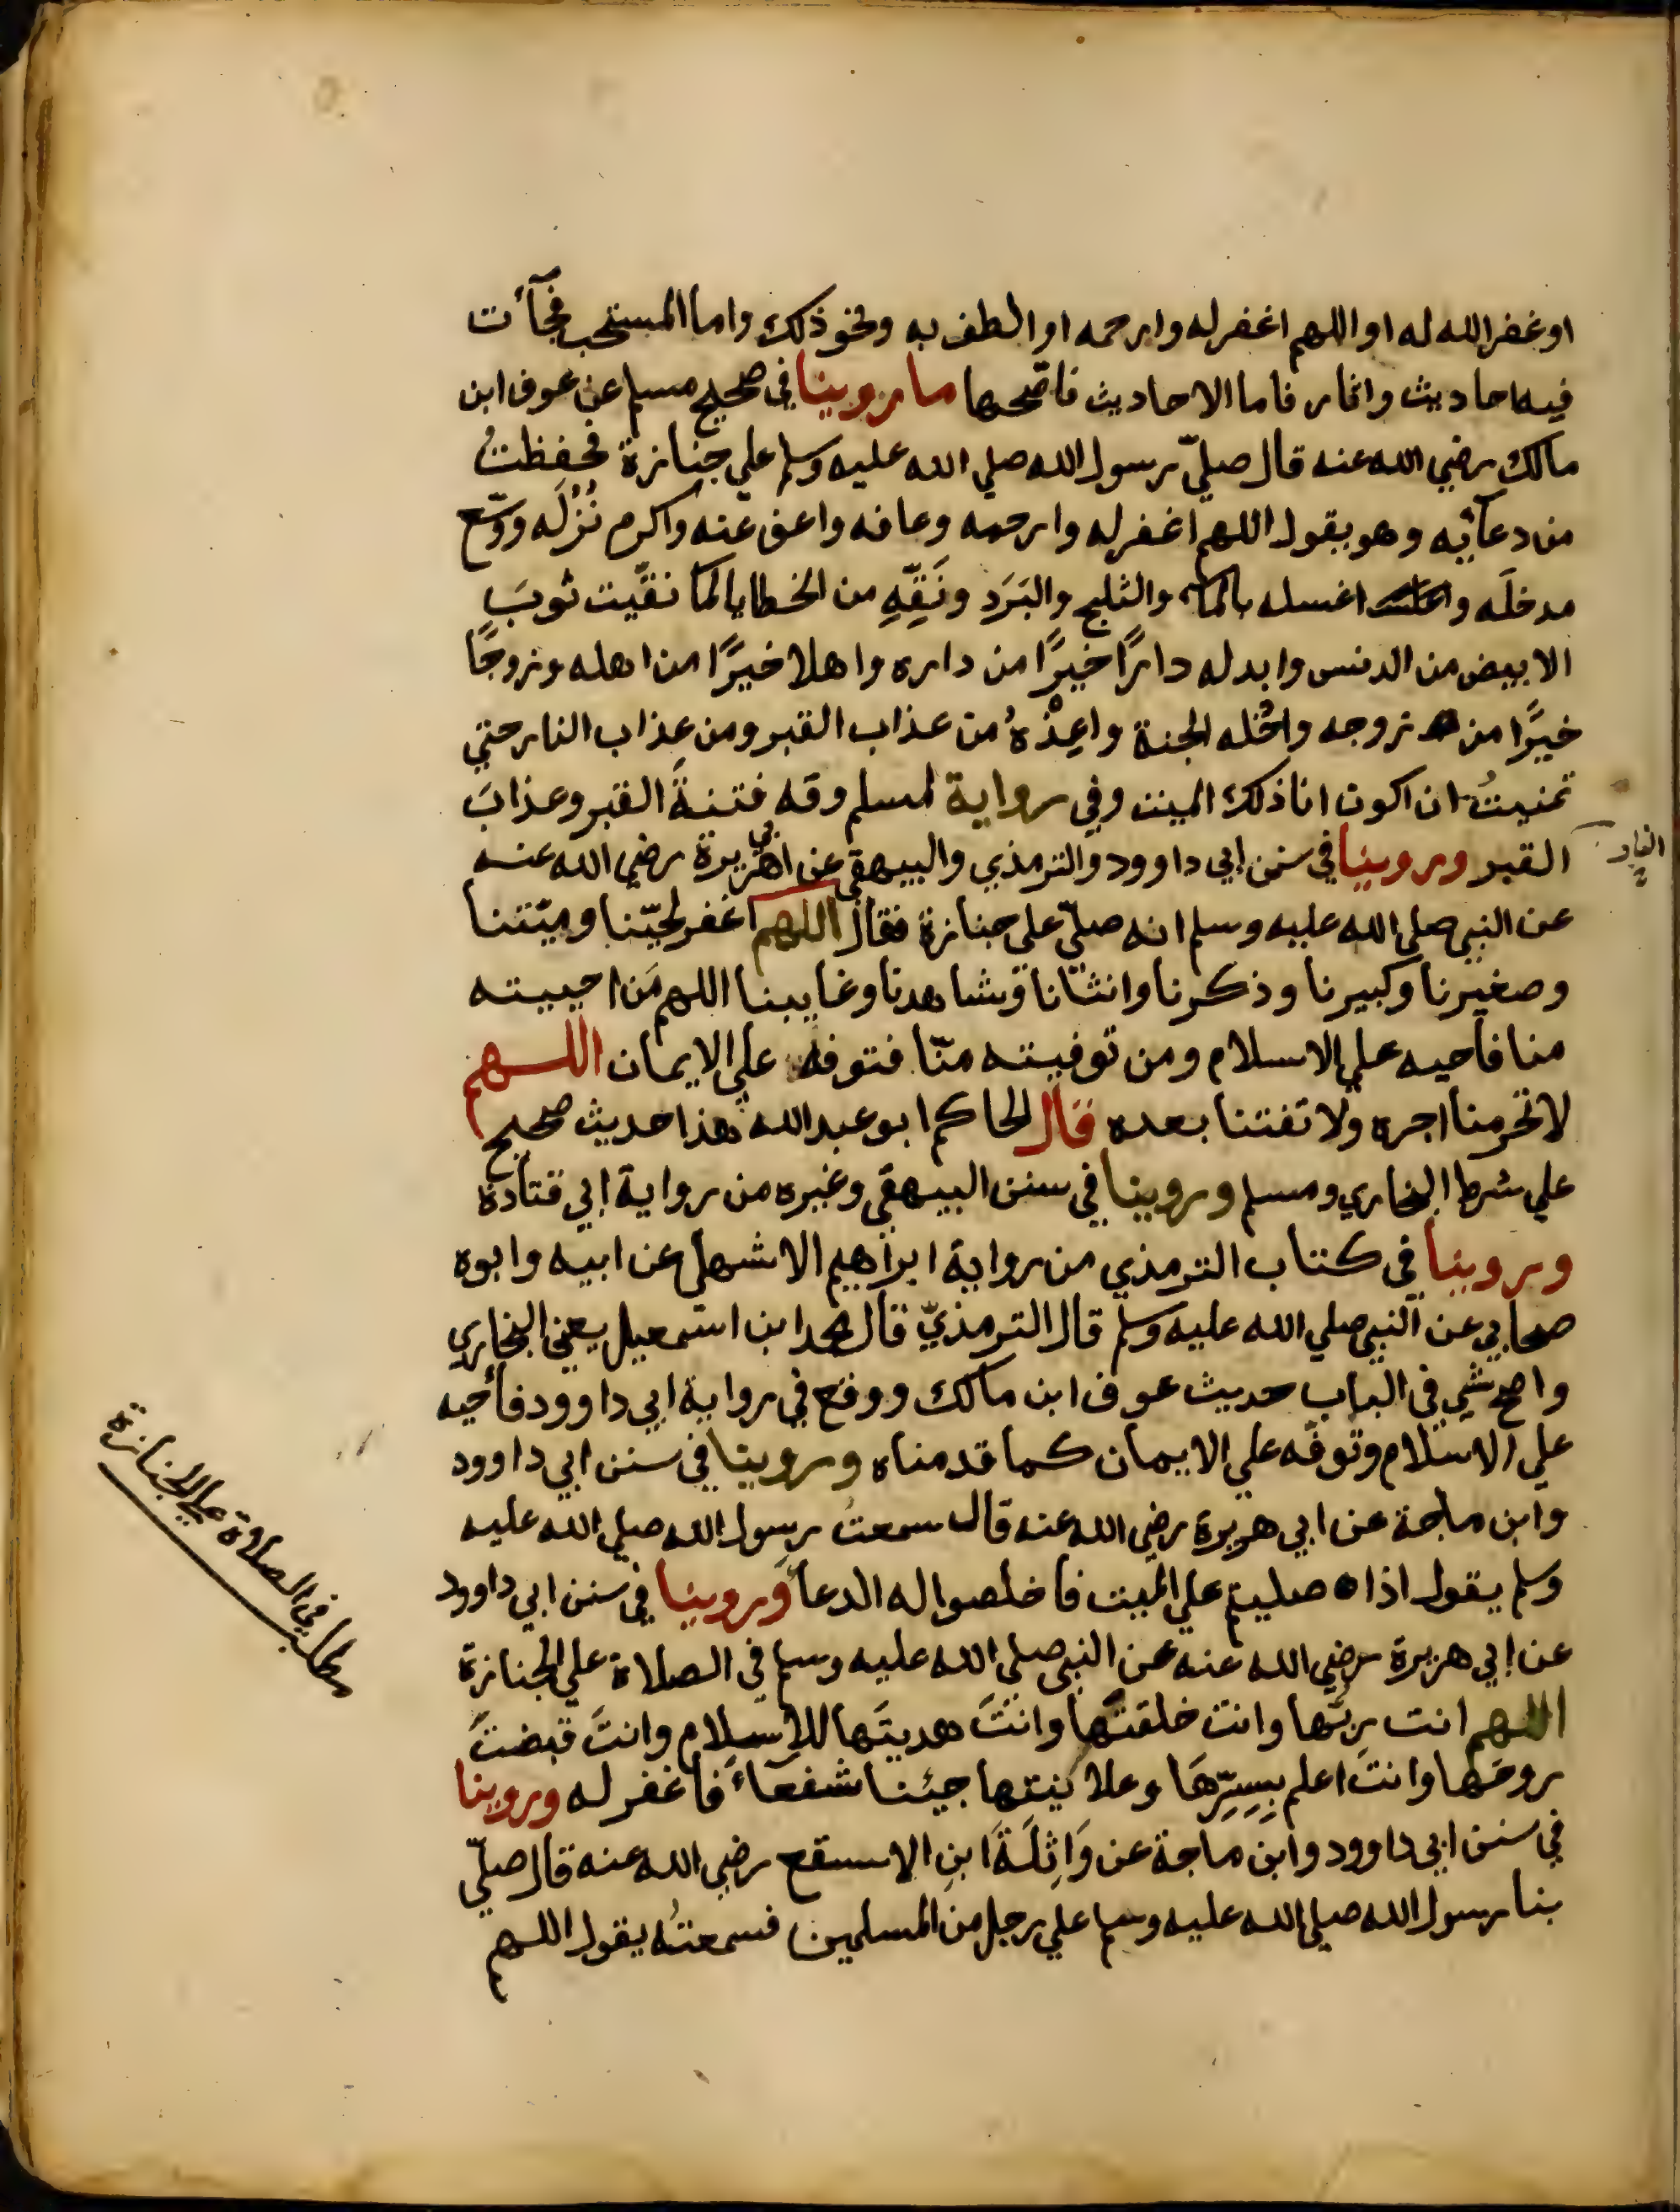 او غفر الله له او اللهم اغفر له وارحمه او الطف به ونحو ذلك واما المستحب فجآأت
فيه احاديث واثار فاما الاحاديث فاصّحها ما روينا في صحيح مسلم عن عوف ابن
مالك رضي الله عنه قال صليّ رسول الله صلي الله عليه وسلم علي جنازة فحفظتُ
من دعآئِه وهو يقول اللهم اغفر له وارحمه وعافه واعف عنه واكرم نُزُلَه ووسّع
مدخلَه واغسله بالمآء والثلج والبَرَد ونَقِّهِ من الخطايا كما نقّيت ثوبَ
الابيض من الدنس وابدله دارًا خيرًا من داره واهلا خيرًا من اهله وزوجًا
خيرًا من زوجه وادخله الجنة واعِذْهُ من عذاب القبر ومن عذاب النار حتي
تمنيتُ ان اكون انا ذلك الميت وفي رواية لمسلم وقه فتنةَ القبر وعذابَ
القبر وروينا في سنن ابي داوود والترمذي والبيهقي عن ابي هريرة رضي الله عنه
النار
عن النبي صلي الله عليه وسلم انه صلّي علي جنازة فقال اللهم اغفر لحيّنا وميّتنا
وصغيرنا وكبيرنا وذكرنا وانثانا وشاهدنا وغايبنا اللهم مَن احييته
منا فاحيه علي الاسلام ومن توفيته منّا فتوفه علي الايمان اللهم
لا تحرمنا اجره ولا تفتنا بعده قال الحاكم ابو عبد الله هذا حديث صحيح
علي شرط البخاري ومسلم وروينا في سنن البيهقي وغيره من رواية ابي قتادة
وروينا في كتاب الترمذي من رواية ابراهيم الاشهلي عن ابيه وابوه
صحابي عن النبي صلي الله عليه وسلم قال الترمذيّ قال محمد ابن اسمعيل يعني البخاري
واصح شي في الباب حديث عوف ابن مالك ووقع في رواية ابي داوود فأحيه
علي الاسلام وتوفّه علي الايمان كما قدمناه وروينا في سنن ابي داوود
وابن ماجة عن ابي هريرة رضي الله عنه قال سمعتُ رسول الله صلي الله عليه
وسلم يقول اذا صليتم علي الميت فاخلصوا له الدعا وروينا في سنن ابي داوود
عن ابي هريرة رضي الله عنه عن النبي صلي الله عليه وسلم في الصلاة علي الجنازة
مطلب في الصلاة علي الجنازة
اللهم انت ربّها وانت خلقتَها وانتَ هديتَها للاسلام وانتَ قبضتَ
روحَها وانتَ اعلم بِسِرِّهَا وعلانيتها جيئنا شفعآءً فاغفر له وروينا
في سنن ابي داوود وابن ماجة عن وَاثِلَةَ ابنِ الاسقع رضي الله عنه قال صلّي
بنا رسول الله صلي الله عليه وسلم علي رجل من المسلمين فسمعتُه يقول اللهم